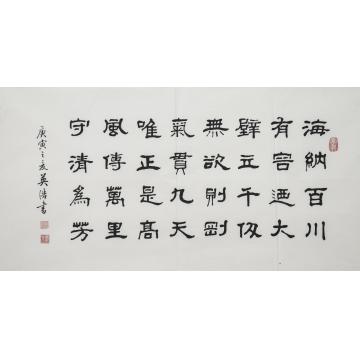 海納百川
有容迺大
壁立千仞
無欲則剛
氣貫九天
唯正是髙
風傳萬里
守清為芳
庚寅之夏英浩書